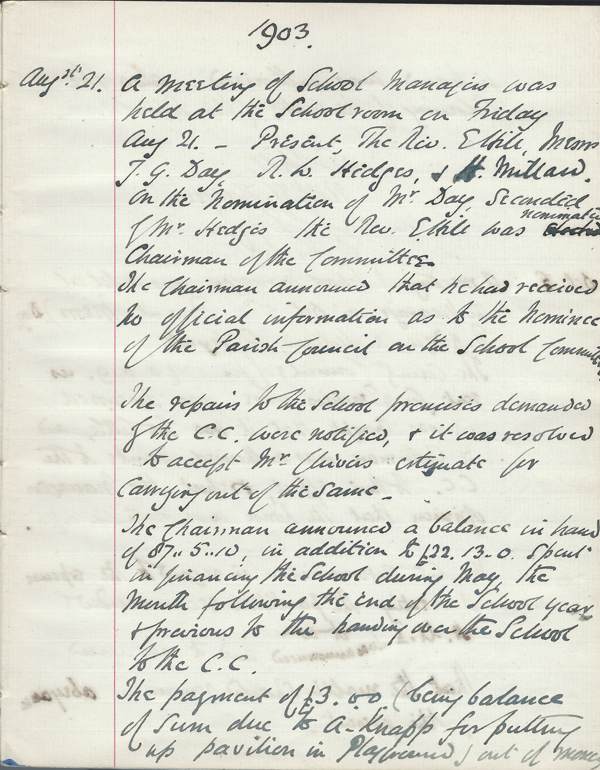 1903.
Augst. 21. A meeting of School Managers was
held at the Schoolroom on Friday
Aug 21. – Present, The Rev. E Hill, Messrs
T. G. Day, R. W. Hedges, & H. Millard.
On the Nomination of Mr. Day, Seconded
by Mr. Hedges the Rev. E Hill was nominated
Chairman of the Committee.
The Chairman announced that he had received
no official information as to the nominee
of the Parish Council on the School Committee
The repairs to the School premises demanded
by the C.C. were notified, & it was resolved
to accept Mr. estimate for
carrying out of the same –
The Chairman announced a balance in hand
of 87 .. 5 .. 10, in addition to £22. 13. 0. spent
in financing the School during May, the
Month following the end of the School year
& previous to the handing over the School
to the C.C.
The payment of £3. 0 0 (being balance
of sum due to A. Knapp for putting
up pavilion in Playground) out of money